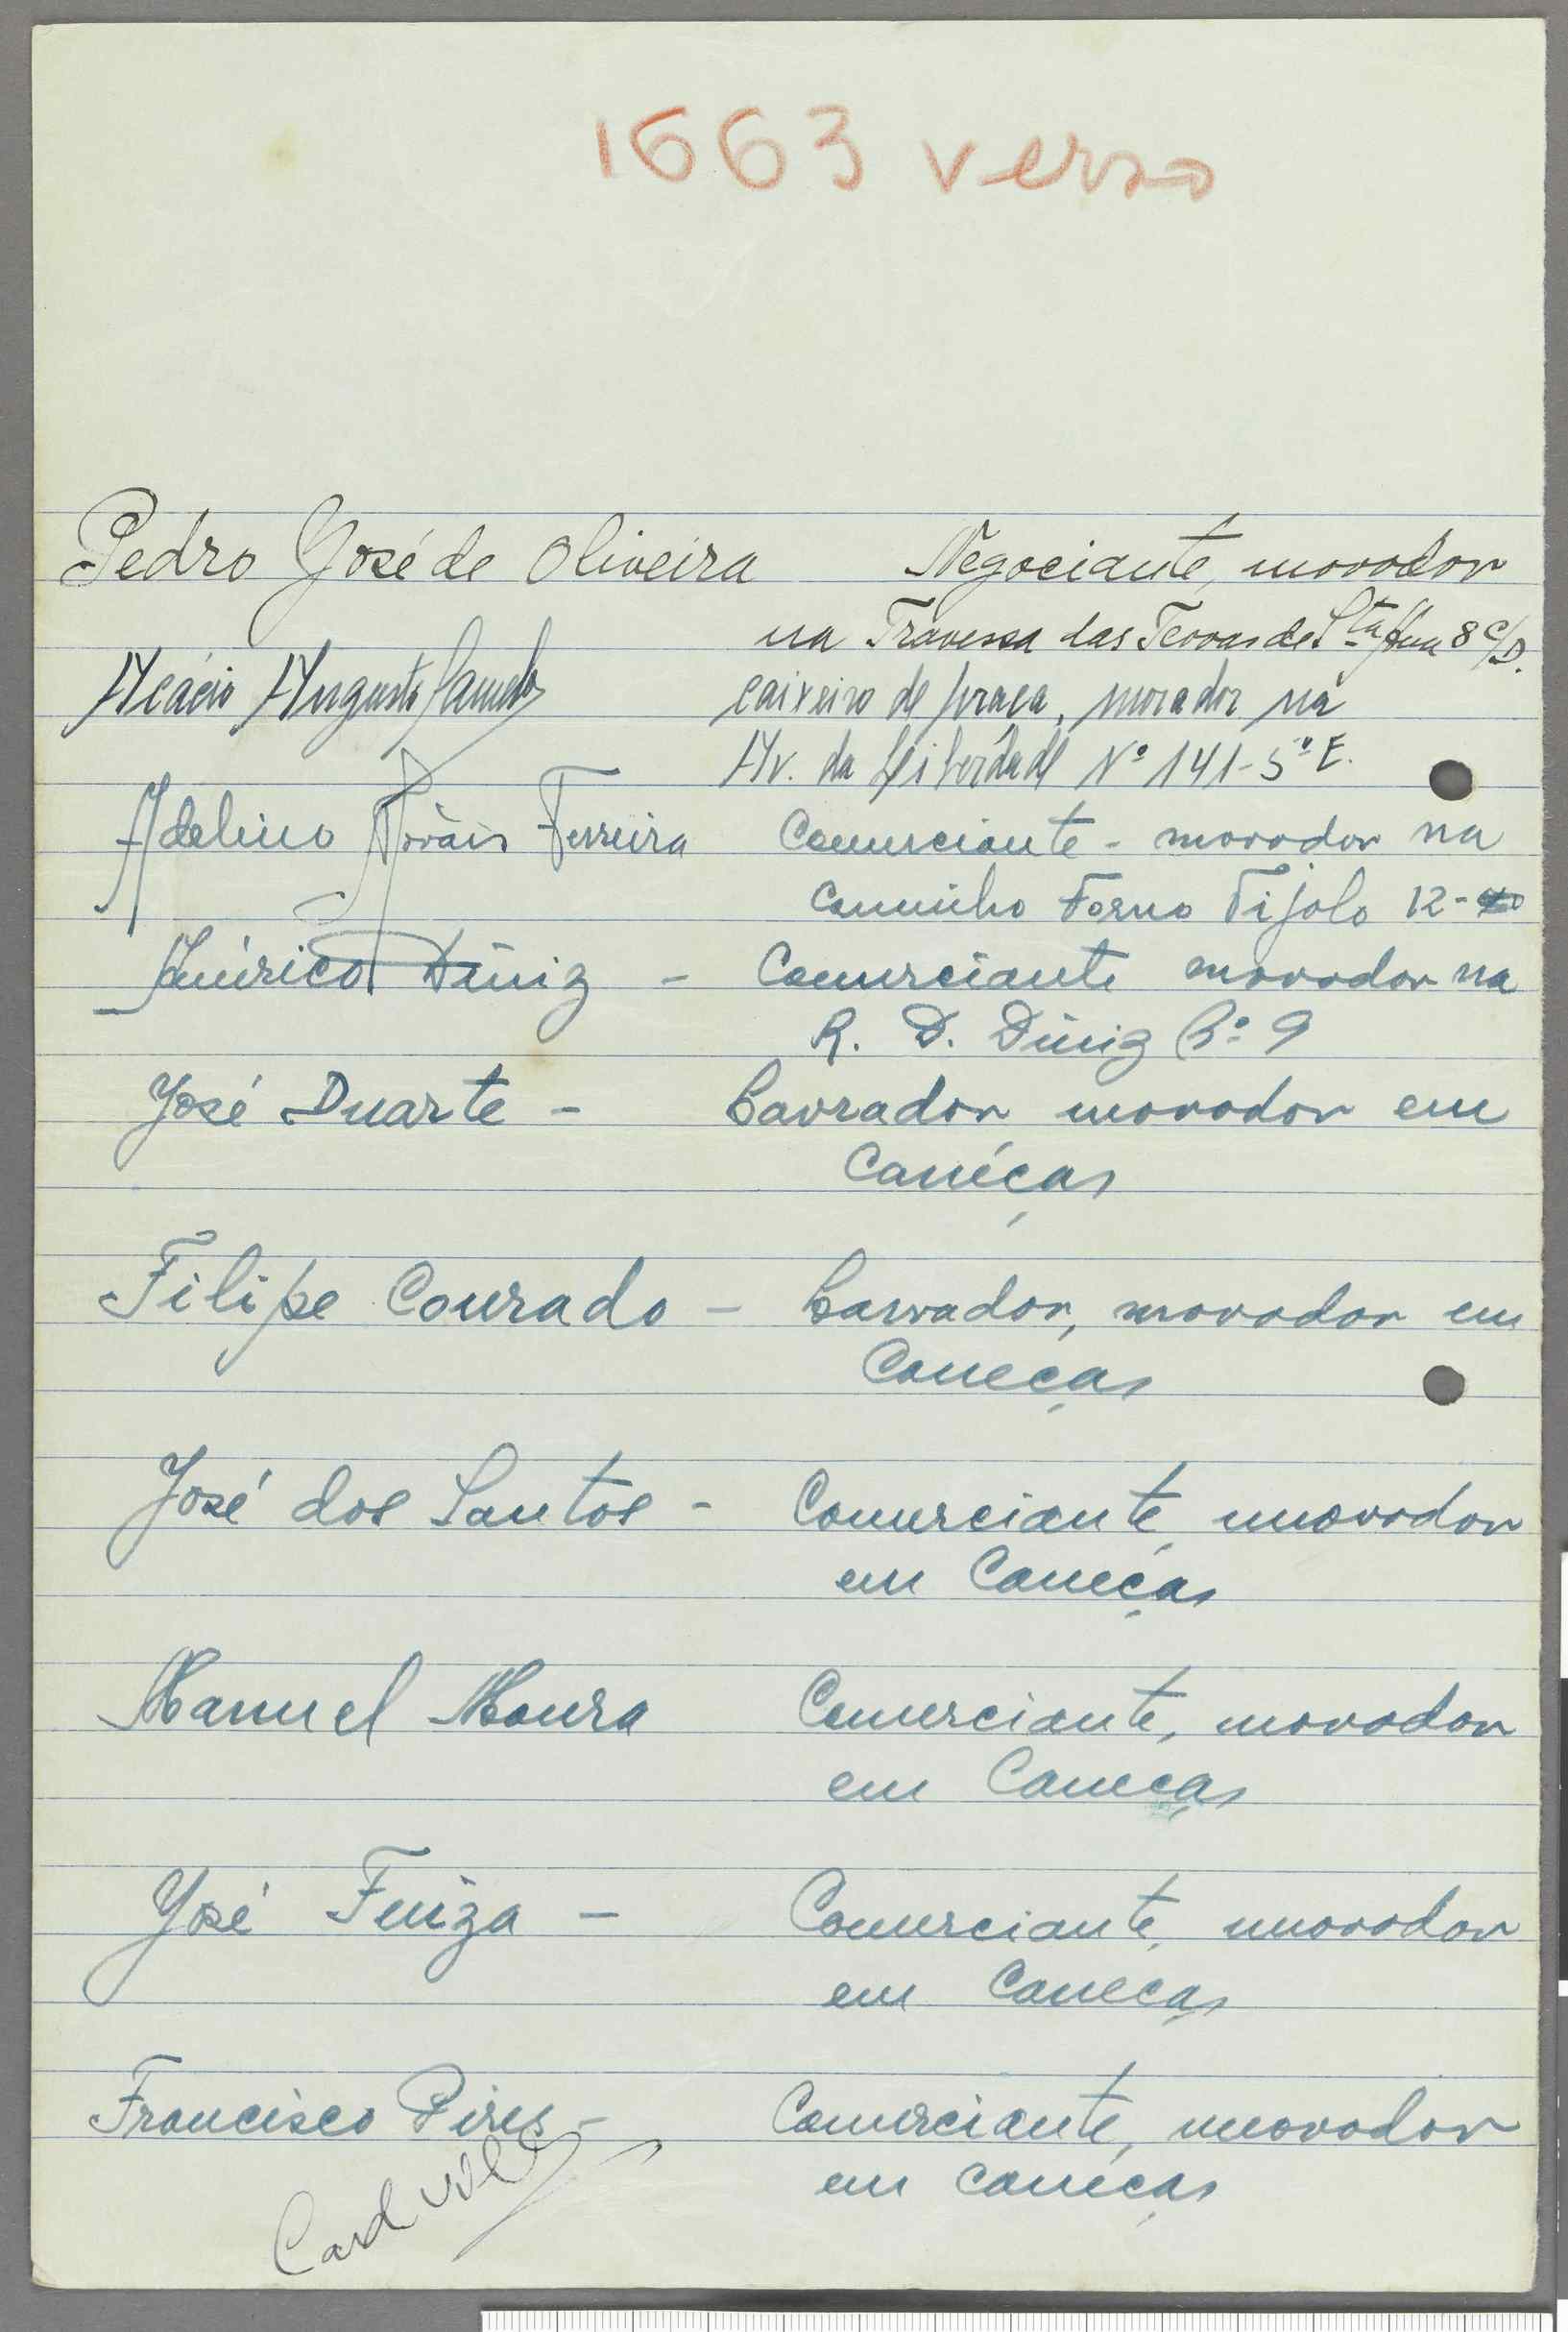 1663 verso
Pedro José de Oliveira Negociante, morador
na Travessa das Terras de Sta Ana 8 C/D.
Acácio Augusto
caixeiro de praça, morador na
Av. da Leiberdade Nº 141-5º E.
Adelino Nováis Ferreira Comerciante - morador na
Caminho Forno Tijolo 12-
Américo Diniz - Comerciante morador na
R. D. Diniz 9
José Duarte - Lavrador morador em
Canéças
Filipe Conrado - Lavrador, morador em
Caneças
José dos Santos - Comerciante, morador
em Caneças
Manuel Moura Comerciante, morador
em Caneças
José Fuiza - Comerciante, morador
em Caneças
Francisco Pires - Comerciante, morador
em Canéças